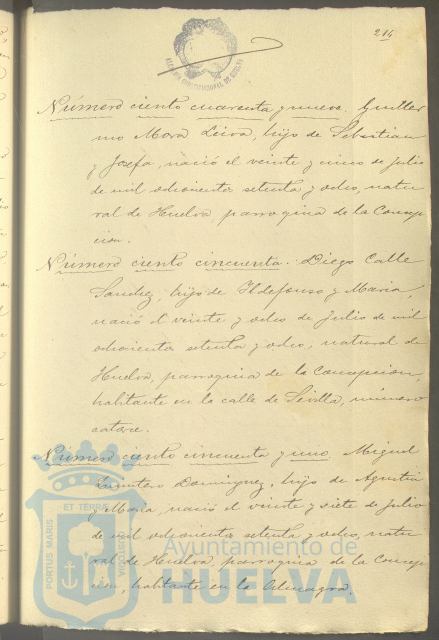 214
ALCALDIA CONSTITUCIONAL DE HUELVA
Número ciento cuarenta y nueve. Guiller
mo Mora Leiva, hijo de Sebastian
y Josefa, nació el veinte y cinco de Julio
de mil ochocientos setenta y ocho, natu
ral de Huelva, parroquia de la Concep
cion.
Número ciento cincuenta. Diego Calle
Sanchez, hijo de Ildefonso y Maria,
nació el veinte y ocho de Julio de mil
ochocientos setenta y ocho, natural de
Huelva, parroquia de la Concepcion,
habitante en la calle de Sevilla, número
catorce.
Número ciento cincuenta y uno Miguel
Quintero Dominguez, hijo de Agustin
y Maria, nació el veinte y siete de Julio
de mil ochocientos setenta y ocho, natu
ral de Huelva, parroquia de la Concep
cion, habitante en la Almagra.
PORTUS MARIS
ET TERRÆ
CUSTODIA
Ayuntamiento de
HUELVA